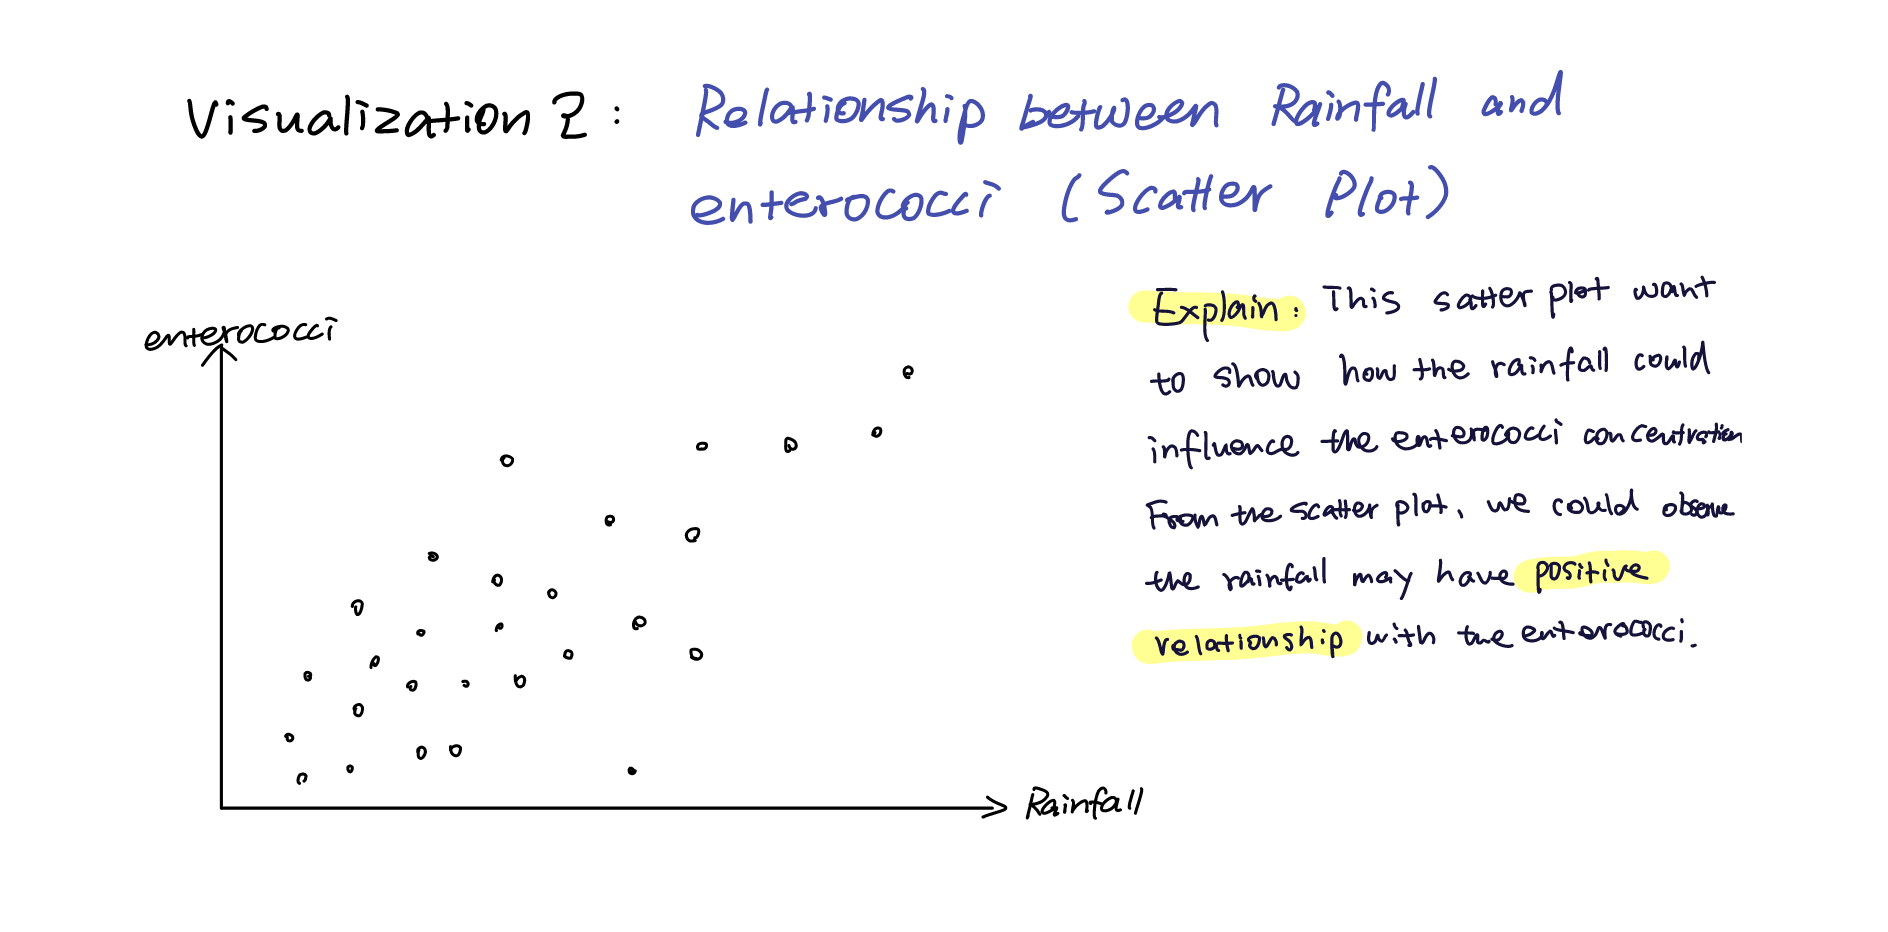 Visualization 2 : Relationship between Rainfall and
enterococci (Scatter Plot)
enterococci
Explain: This satter plot want
to show how the rainfall could
influence the enterococci concentration
From the scatter plot, we could observe
the rainfall may have positive
relationship with the enterococci.
Rainfall